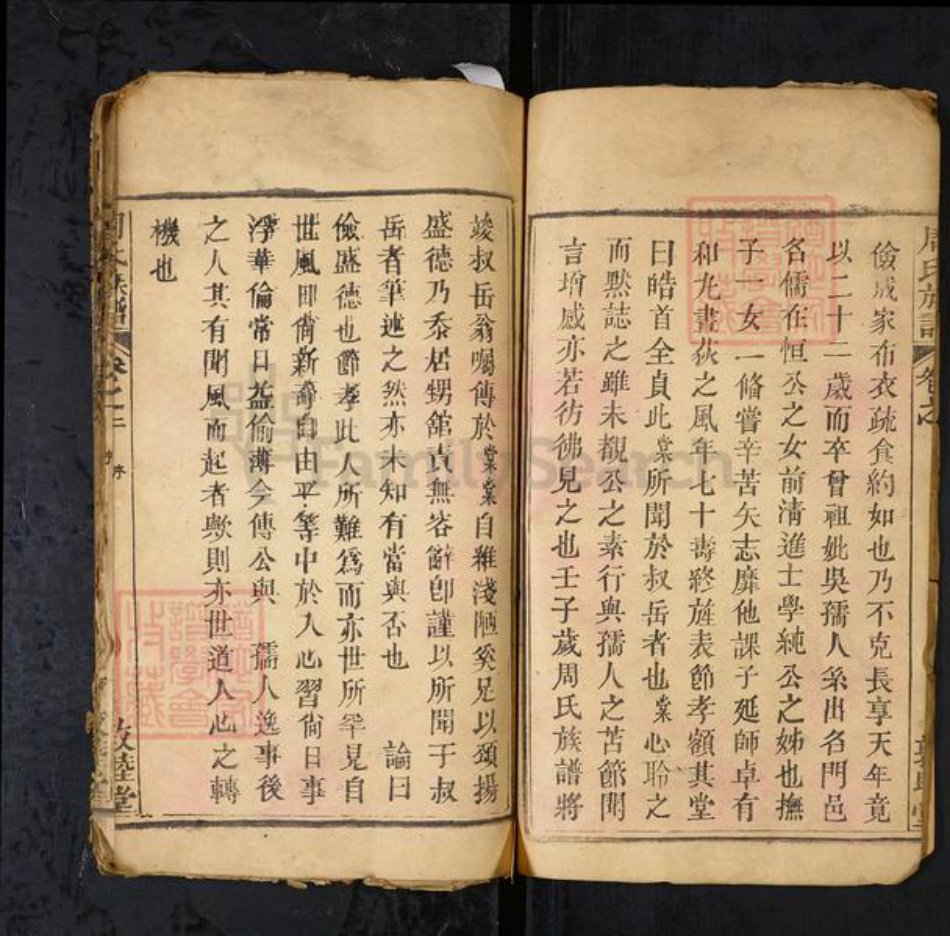 周氏族譜 卷之
儉成家布衣疏食約如也乃不克長享天年竟
以二十二歲而卒曾祖妣吳孺人系出名門邑
名儒在恒公之女前清進士學純公之姊也撫
子一女一偹嘗辛苦矢志靡他課子延師卓有
和丸畫荻之風年七十壽終旌表節孝額其堂
曰皓首全貞此棠所聞於叔岳者也棠心聆之
而默誌之雖未覩公之素行與孺人之苦節聞
言增感亦若彷彿見之也壬子歲周氏族譜將
竣叔岳翁囑傳於棠棠自維淺陋奚足以頌揚
盛德乃忝居甥舘責無容辭卽謹以所聞于叔
岳者筆述之然亦未知有當與否也 論曰
儉盛德也節孝此人所難爲而亦世所罕見自
世風日尙新奇自由平等中於人心習尙日事
浮華倫常日益偷薄今傳公與 孺人逸事後
之人其有聞風而起者歟則亦世道人心之轉
機也
周氏族譜 卷之二 序 敦睦堂
FamilySearch